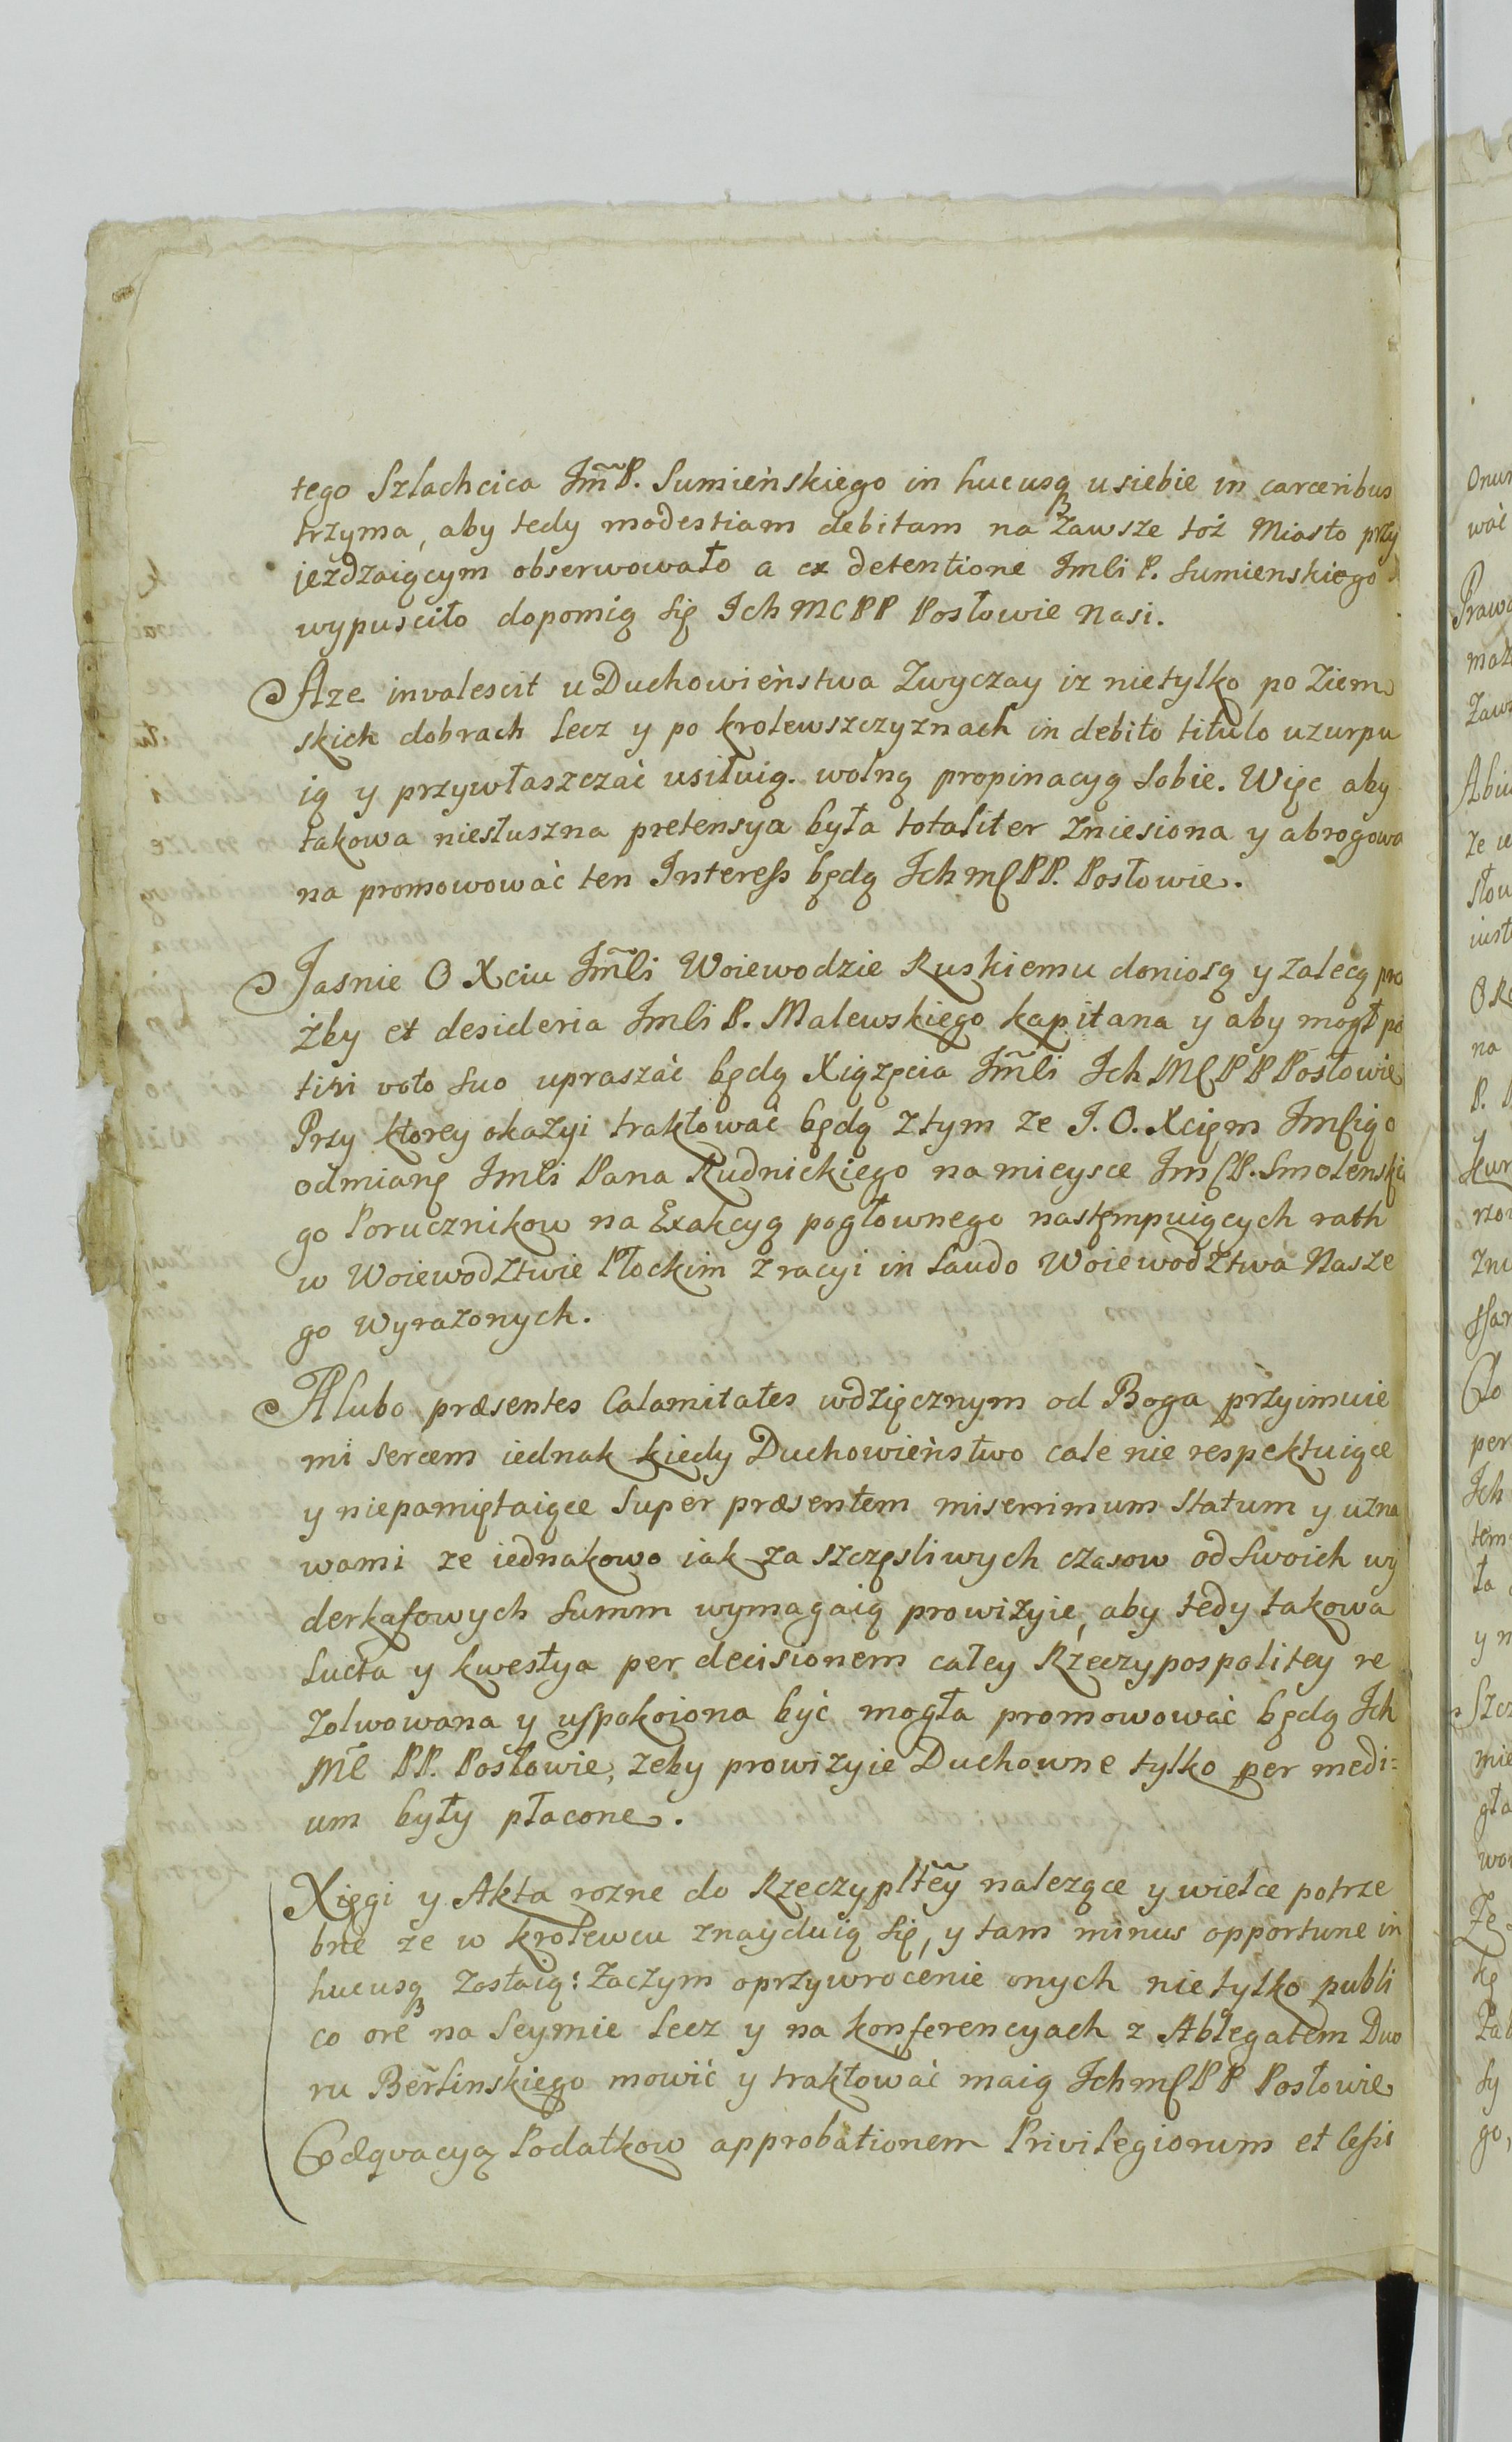 tego Szlachcica Jm̃P. Sumieńskiego in hucusq₃ u siebie in carceribus
trzyma, aby tedy modestiam debitam na zawsze toż Miasto przy
jezdzaiącym obserwowało a ex detentione Jmli P. Sumienskiego
wypusciło dopomią się Ich MC PP Posłowie Nasi.
Aze invalescit u Duchowieństwa Zwyczay iz nietylko po Ziem
skich dobrach lecz y po krolewszczyznach in debito titulo uzurpu
ią y przywłaszczać usiłuią. wolną propinacyą sobie. Więc aby
takowa niesłuszna pretensya była totaliter zniesiona y abrogowa
na promowować ten Interess będą Ich mſ PP. Posłowie.
Jasnie O Xciu Jm̃li Woiewodzie Ruskiemu doniosą y zalecą pro
żby et desideria Jmli P. Malewskiego kapitana y aby mogł po
tiri voto suo upraszać będą Xiążęcia Jm̃li Ich Mſ PP Posłowie
Przy ktorey okazyi traktować będą z tym ze J. O. Xcięm Jmſigo
odmianę Jmli Pana Rudnickiego na mieysce Jmſ P. Smolenskie
go Porucznikow na Exakcyą pogłownego nastęmpuiących rath
w Woiewodztwie Płockim z racyi in Laudo Woiewodztwa Nasze
go Wyrazonych.
A lubo præsentes Calamitates wdzięcznym od Boga przyimuie
mi sercem iednak kiedy Duchowieństwo cale nie respektuiące
y niepamiętaiące super præsentem miserrimum Statum y uzna
wami ze iednakowo iak za szczęsliwych czasow od swoich wy
derkafowych summ wymagaią prowizyie, aby tedy takowa
lucta y kwestya per decisionem całey Rzeczypospolitey re
zolwowana y uspokoiona być mogła promowować będą Ich
Mć PP. Posłowie, zeby prowizyie Duchowne tylko per medi=
um były płacone.
Xięgi y Akta rozne do Rzeczyplt̃ey nalezące y wielce potrze
bne ze w krolewcu znayduią się, y tam minus opportune in
hucusq₃ zostaią: zaczym o przywrocenie onych nietylko publi
co ore na Seymie lecz y na konferencyach z Ablegatem Dwo
ru Berlinskiego mowić y traktować maią Ich mſ PP Posłowie
Coæqvacyą Podatkow approbationem Privilegiorum et